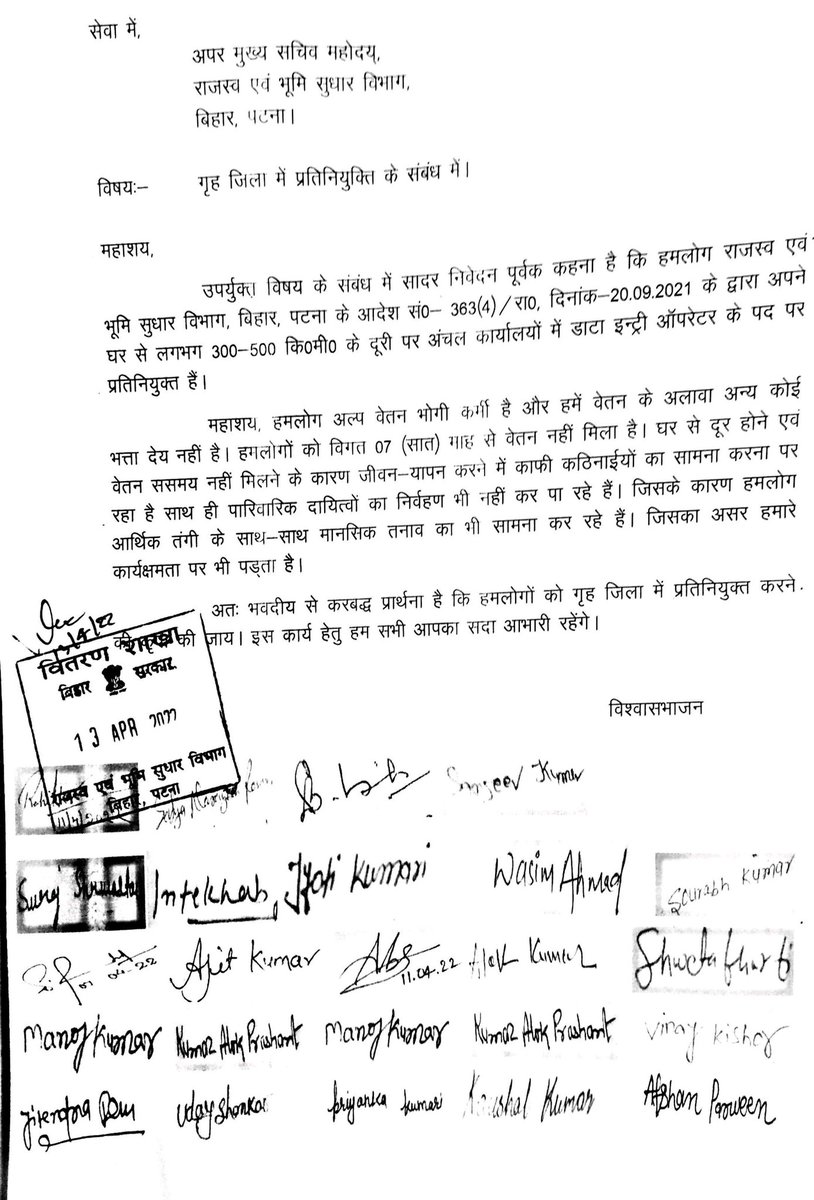 सेवा में,
अपर मुख्य सचिव महोदय,
राजस्व एवं भूमि सुधार विभाग,
बिहार, पटना।
विषयः– गृह जिला में प्रतिनियुक्ति के संबंध में।
महाशय,
उपर्युक्त विषय के संबंध में सादर निवेदन पूर्वक कहना है कि हमलोग राजस्व एवं
भूमि सुधार विभाग, बिहार, पटना के आदेश सं0– 363(4)/रा0, दिनांक–20.09.2021 के द्वारा अपने
घर से लगभग 300–500 कि0मी0 के दूरी पर अंचल कार्यालयों में डाटा इन्ट्री ऑपरेटर के पद पर
प्रतिनियुक्त हैं।
महाशय, हमलोग अल्प वेतन भोगी कर्मी है और हमें वेतन के अलावा अन्य कोई
भत्ता देय नहीं है। हमलोगों को विगत 07 (सात) माह से वेतन नहीं मिला है। घर से दूर होने एवं
वेतन ससमय नहीं मिलने के कारण जीवन–यापन करने में काफी कठिनाईयों का सामना करना पर
रहा है साथ ही पारिवारिक दायित्वों का निर्वहण भी नहीं कर पा रहे हैं। जिसके कारण हमलोग
आर्थिक तंगी के साथ–साथ मानसिक तनाव का भी सामना कर रहे हैं। जिसका असर हमारे
कार्यक्षमता पर भी पड़ता है।
अतः भवदीय से करबद्ध प्रार्थना है कि हमलोगों को गृह जिला में प्रतिनियुक्त करने
की जाय। इस कार्य हेतु हम सभी आपका सदा आभारी रहेंगे।
वितरण शाखा
बिहार सरकार
13 APR 2022
राजस्व एवं भूमि सुधार विभाग
बिहार, पटना
विश्वासभाजन
Sanjeev Kumar
Intekhab, Jyoti Kumari Wasim Ahmad Sourabh Kumar
Ajit Kumar 11.04.22 Alok Kumar Shweta bharti
Manoj Kumar Kumar Alok Prashant Manoj Kumar Kumar Alok Prashant Vinay Kishor
Jitendra Ram Uday Shankar Priyanka kumari Kaushal Kumar Afshan Parween